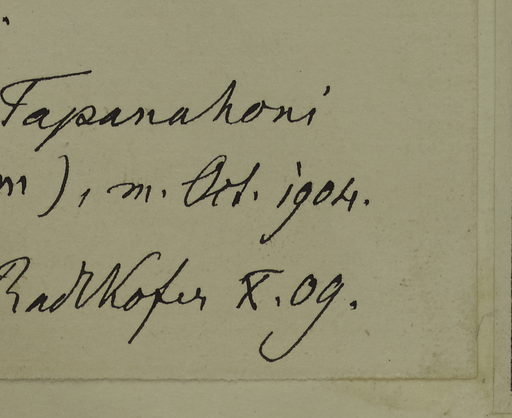 Tapanahoni
m), m. Oct. 1904.
Radlkofer X.09.